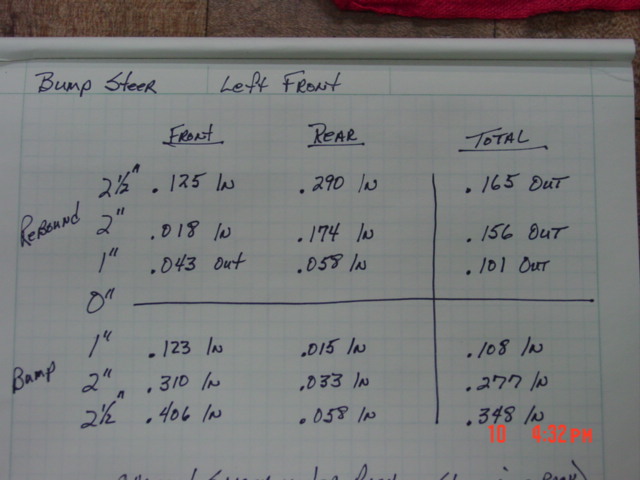 Bump Steer Left Front
Front Rear Total
2 1/2" .125 In .290 In .165 Out
Rebound 2" .018 In .174 In .156 Out
1" .043 Out .058 In .101 Out
0"
1" .123 In .015 In .108 In
Bump 2" .310 In .033 In .277 In
2 1/2" .406 In .058 In .348 In
10 4:32 PM